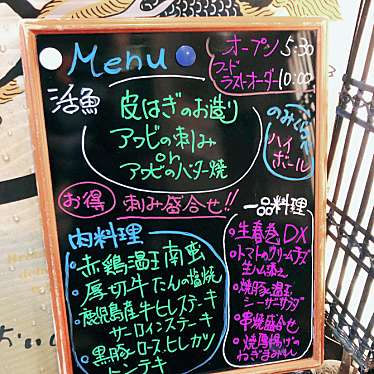 Menu
オープン 5:30
フード
ラストオーダー 10:00
活魚
皮はぎのお造り
アワビの刺み
or
アワビのバター焼
ハイ
ボール
お得
刺み盛合せ!!
一品料理
・生春巻DX
・トマトのクリームチーズ
生ハム添え
・焼豚と温玉
シーザーサラダ
・串焼盛合せ
・焼厚揚げの
ねぎまみれ
肉料理
・赤鶏温玉南蛮
・厚切牛たんの塩焼
・鹿児島産牛ヒレステーキ
サーロインステーキ
・黒豚ロース、ヒレカツ
トンテキ